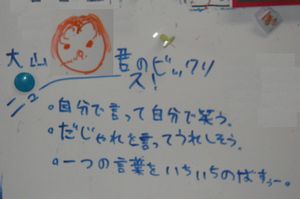 大山君のビックリ
ス!
ニュ
・自分で言って自分で笑う。
・だじゃれを言ってうれしそう。
・一つの言葉をいちいちのばすぅー。